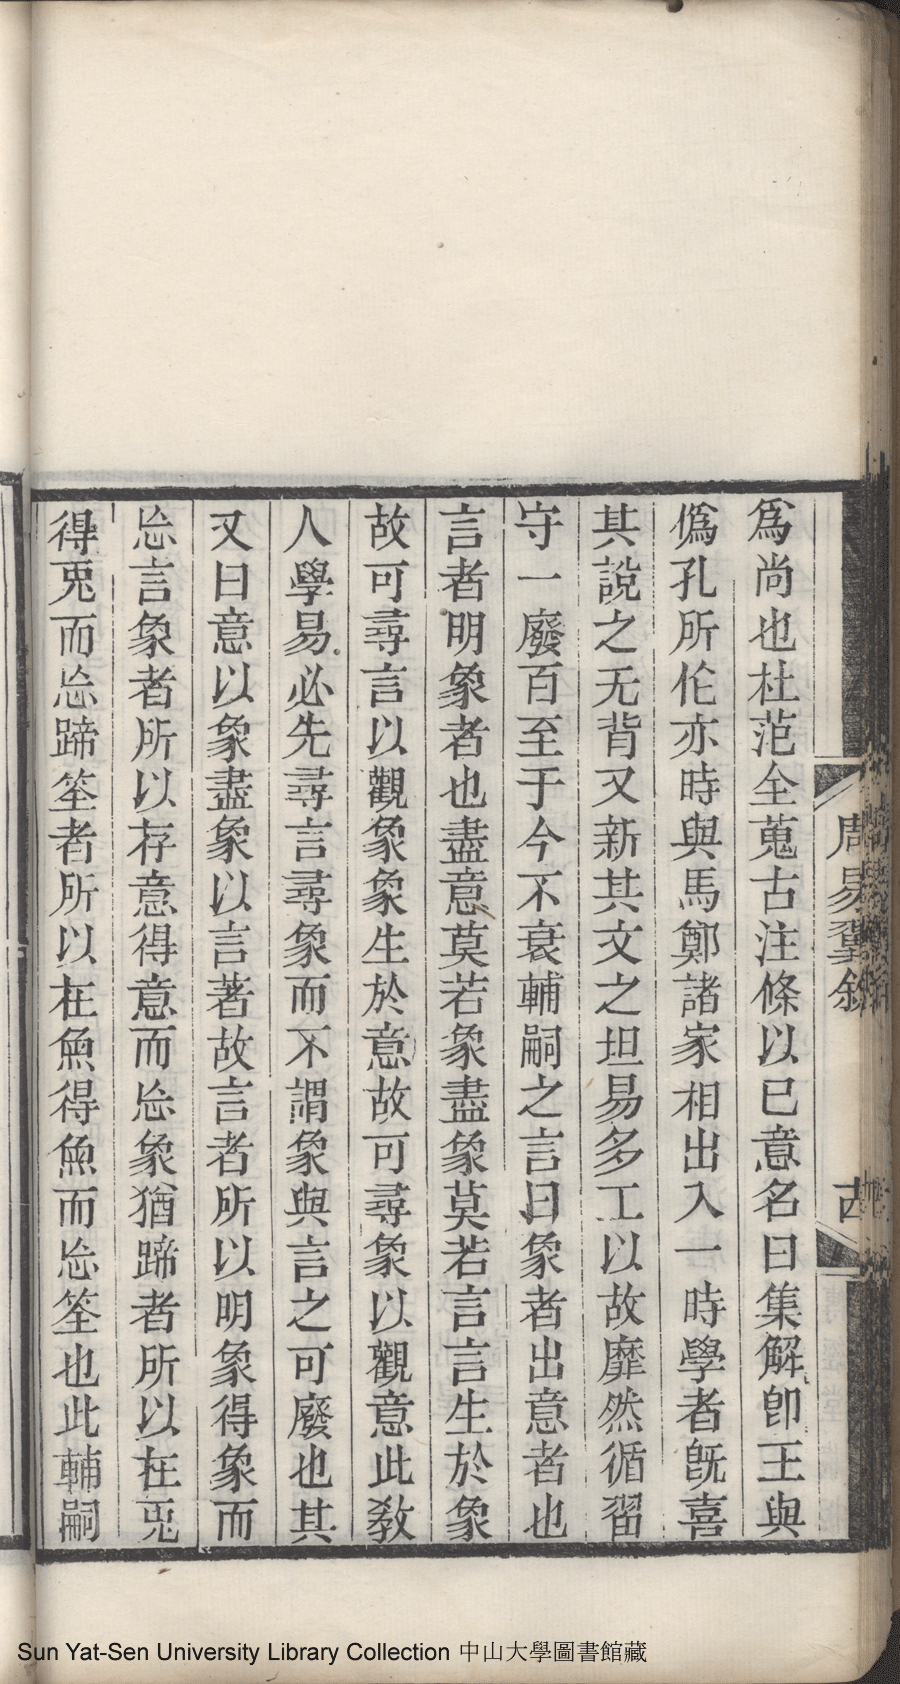 爲尚也杜范全蒐古注條以已意名曰集解卽王與
僞孔所作亦時與馬鄭諸家相出入一時學者旣喜
其說之无背又新其文之坦易多工以故靡然循習
守一廢百至于今不衰輔嗣之言曰象者出意者也
言者明象者也盡意莫若象盡象莫若言言生於象
故可尋言以觀象象生於意故可尋象以觀意此敎
人學易必先尋言尋象而不謂象與言之可廢也其
又曰意以象盡象以言著故言者所以明象得象而
忘言象者所以存意得意而忘象猶蹄者所以在兎
得兎而忘蹄筌者所以在魚得魚而忘筌也此輔嗣
周易翼釋
Sun Yat-Sen University Library Collection 中山大學圖書館藏